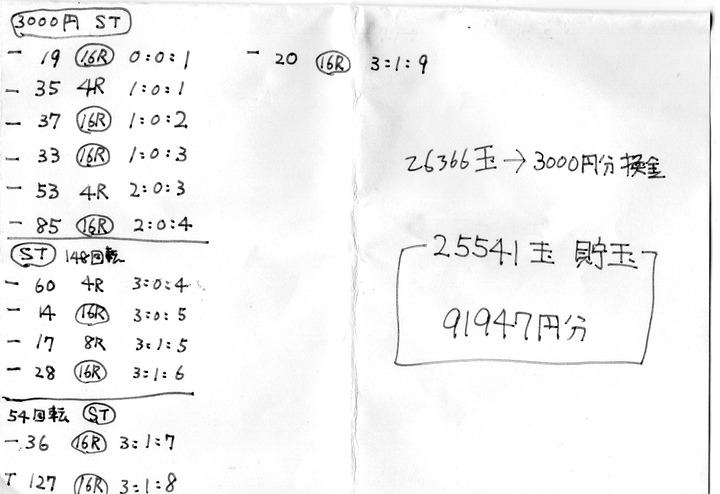 3000円 ST
— 19 16R 0:0:1
— 35 4R 1:0:1
— 37 16R 1:0:2
— 33 16R 1:0:3
— 53 4R 2:0:3
— 85 16R 2:0:4
ST 148回転
— 60 4R 3:0:4
— 14 16R 3:0:5
— 17 8R 3:1:5
— 28 16R 3:1:6
54回転 ST
— 36 16R 3:1:7
T 127 16R 3:1:8
— 20 16R 3:1:9
26366玉→3000円分換金
25541玉 貯玉
91947円分